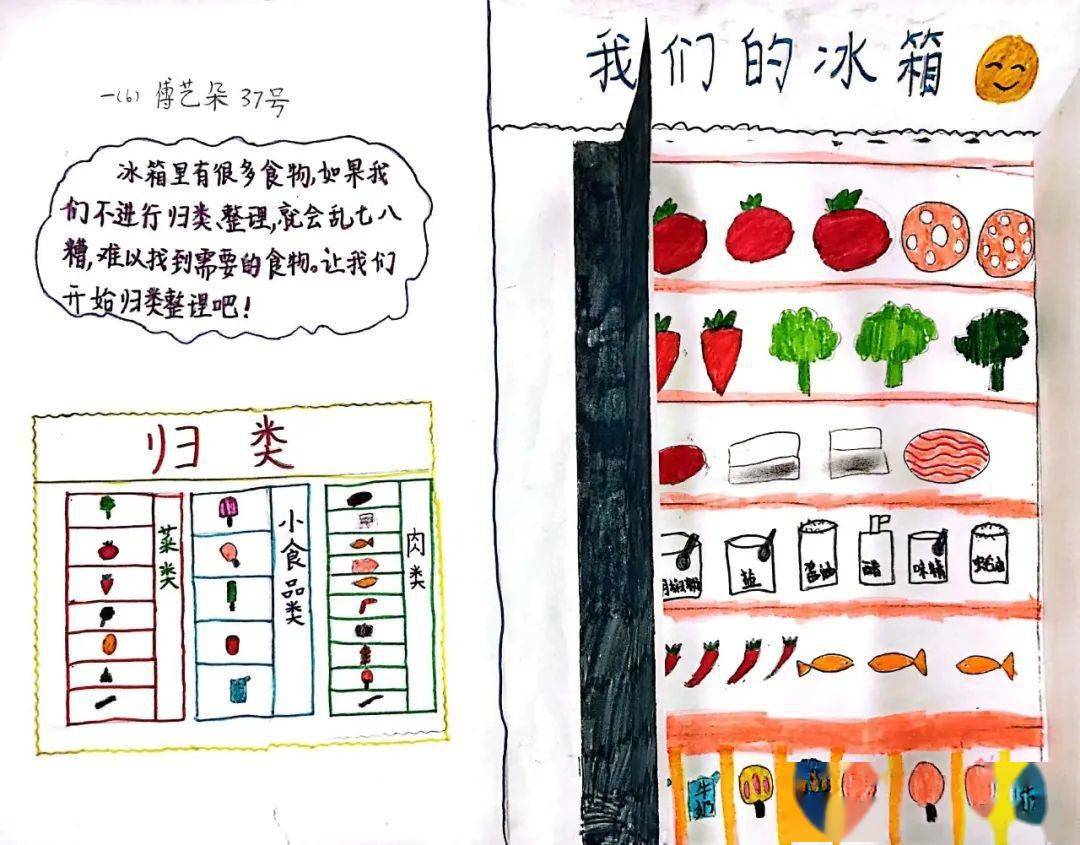 一(6) 傅艺朵 37号
冰箱里有很多食物,如果我
们不进行归类、整理,就会乱七八
糟,难以找到需要的食物。让我们
开始归类整理吧!
归类
菜类
小食品类
肉类
我们的冰箱
盐
酱油
醋
味精
蚝油
牛奶